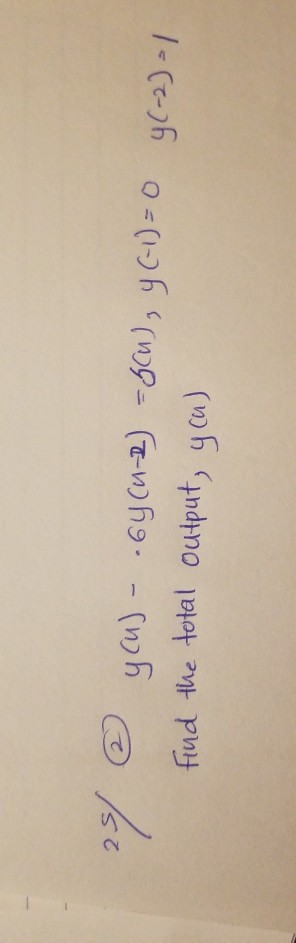 25/ ② y(n) - .6y(n-2) = δ(n), y(-1) = 0 y(-2) = 1
Find the total output, y(n)